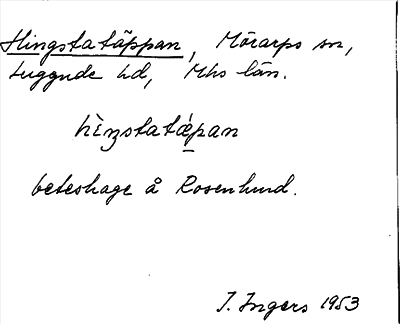 Hingstatäppan, Mörarps sn,
Luggude hd, Mhs län.
hìŋstatǽpan
beteshage å Rosenlund.
I. Ingers 1953